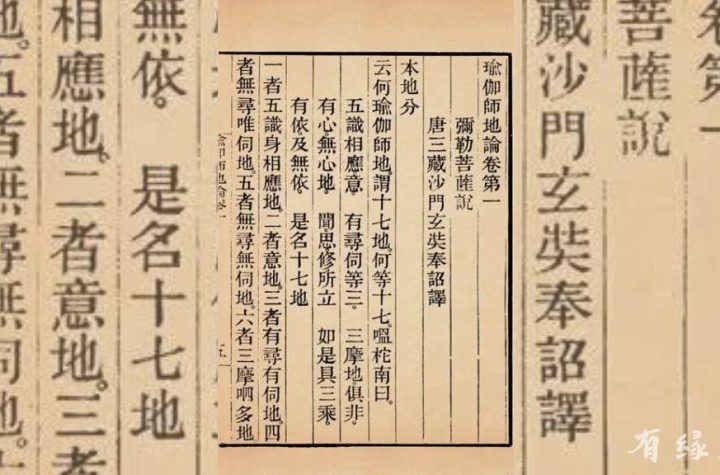 瑜伽師地論卷第一
彌勒菩薩說
唐三藏沙門玄奘奉詔譯
本地分
云何瑜伽師地。謂十七地。何等十七。嗢柁南曰。
五識相應意。 有尋伺等三。 三摩地俱非。
有心無心地。 聞思修所立 如是具三乘。
有依及無依。 是名十七地
一者五識身相應地。二者意地。三者有尋有伺地。四
者無尋唯伺地。五者無尋無伺地。六者三摩呬多地
卷第一
菩薩說
藏沙門玄奘奉詔譯
無依。 是名十七地
相應地。二者意地。三者
地。五者無尋無伺地。
有緣